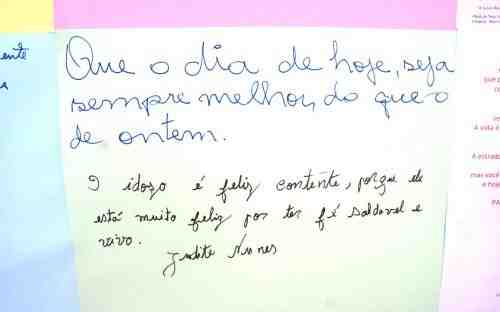 Que o dia de hoje, seja
sempre melhor, do que o
de ontem.
O idozo é feliz contente, porque ele
está muito feliz por ter fé saldavel e
vivo.
Judite Nunes
ente
A
A vida